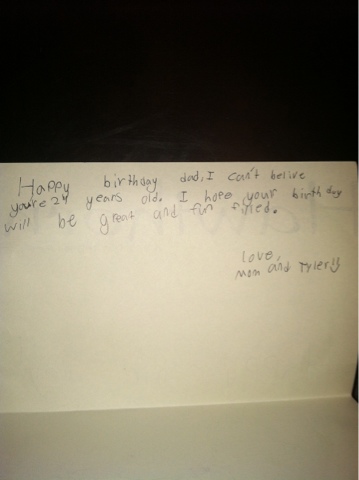 Happy birthday dad, I can't belive
you're 24 years old. I hope your birthday
will be great and fun filled.
love,
mom and Tyler!!